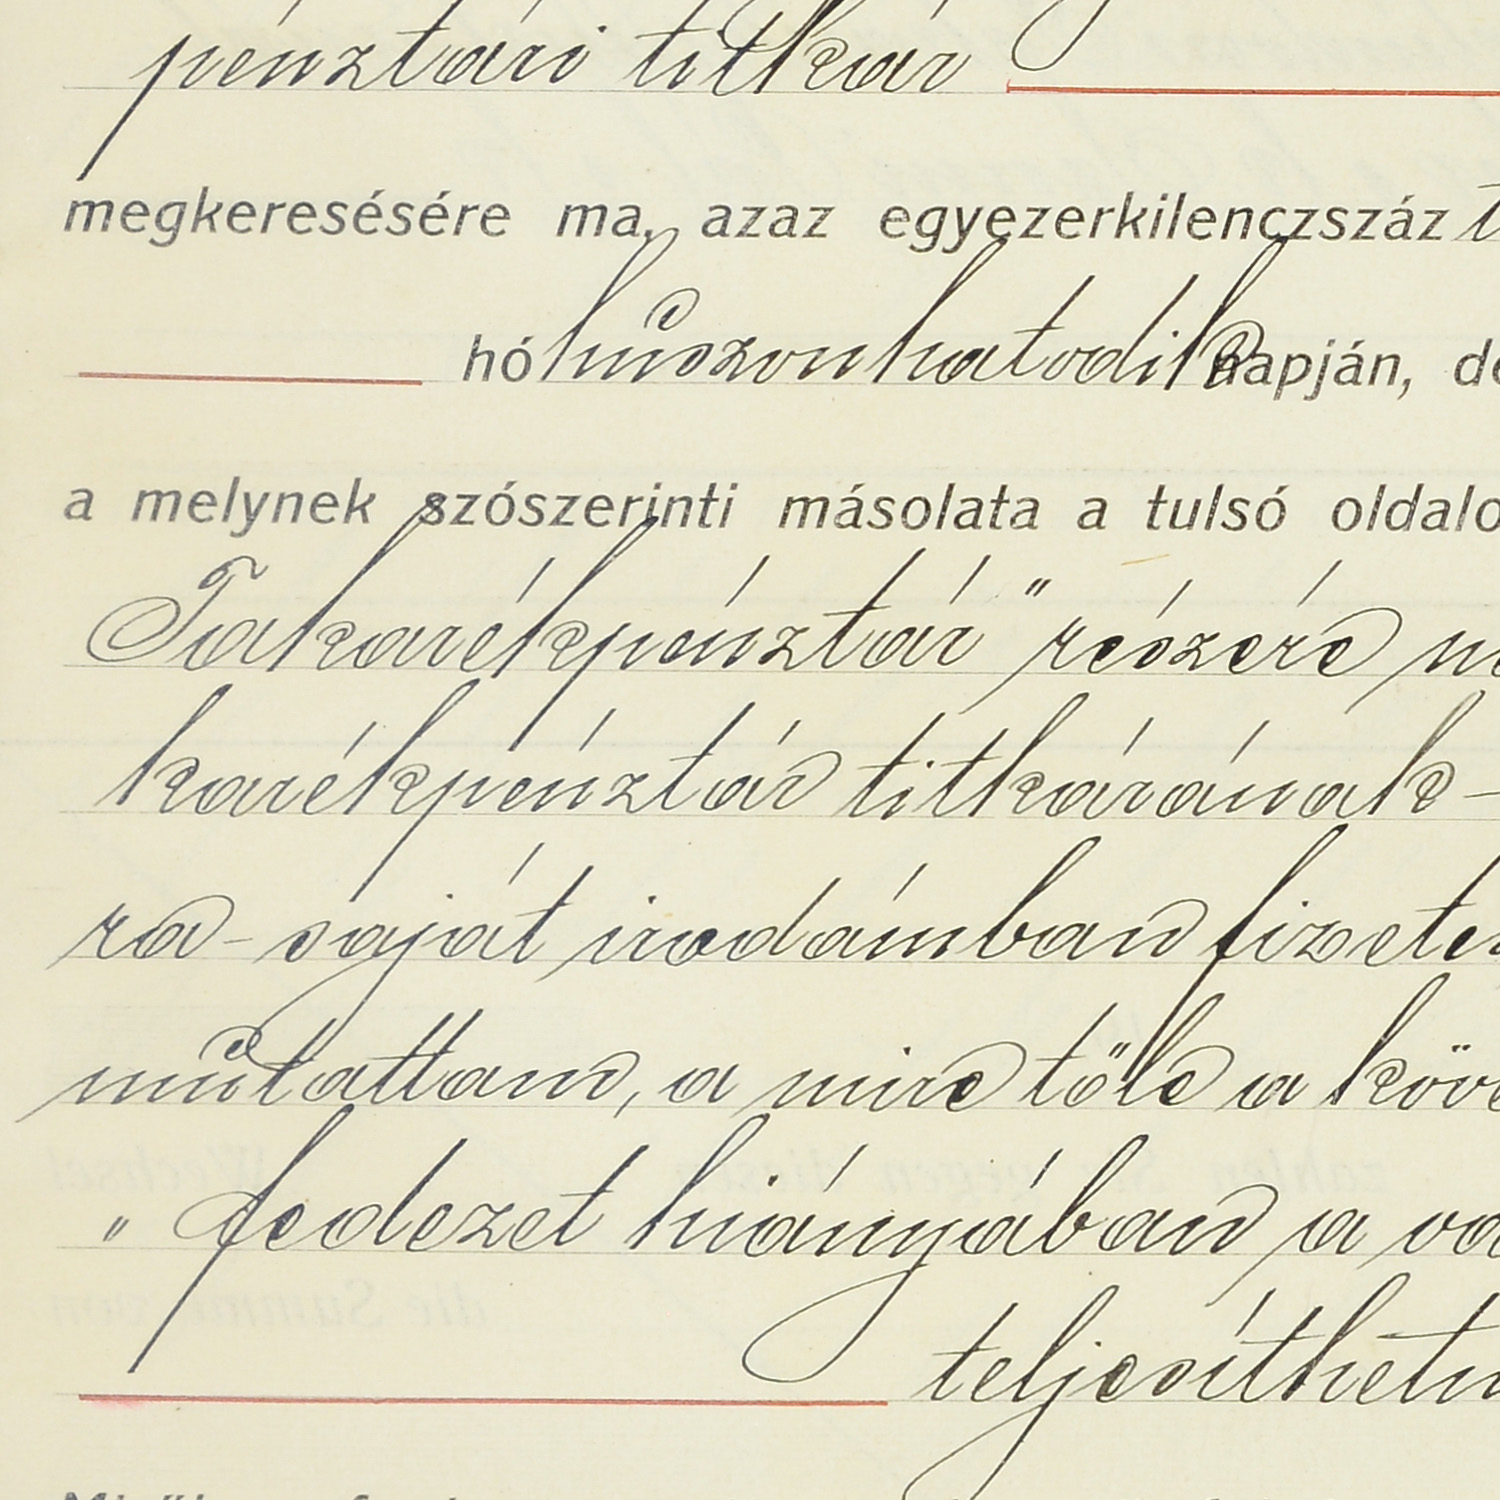 pénztári titkár
megkeresésére ma, azaz egyezerkilenczszáz
hó huszonhatodik napján, de
a melynek szószerinti másolata a tulsó oldalo
Takarékpénztár" részére
karékpénztár titkárának-
ra- saját irodámban fizeté
mutattam, a mire tőle a köve
" fedezet hiányában a
teljesíthetn